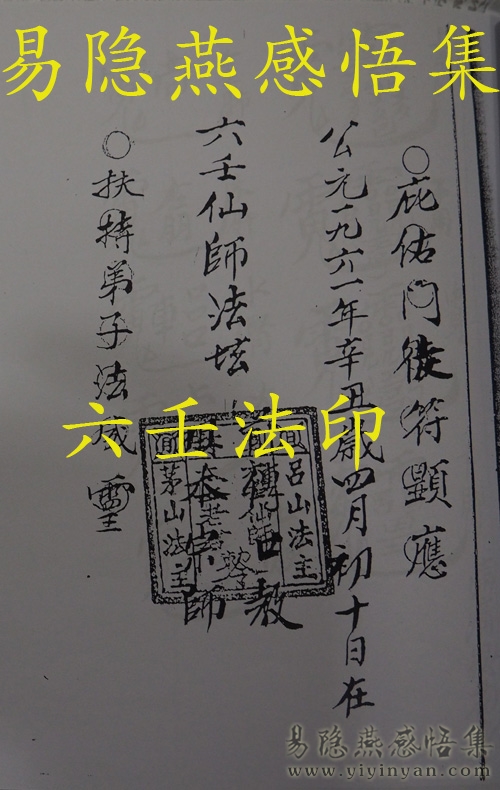 易隐燕感悟集
○庇佑门徒符顯應
公元一九六一年辛丑歲四月初十日在
六壬仙師法坛
○扶持弟子法威靈
六壬法印
呂山法主
茅山法主
易隐燕感悟集
www.yiyinyan.com